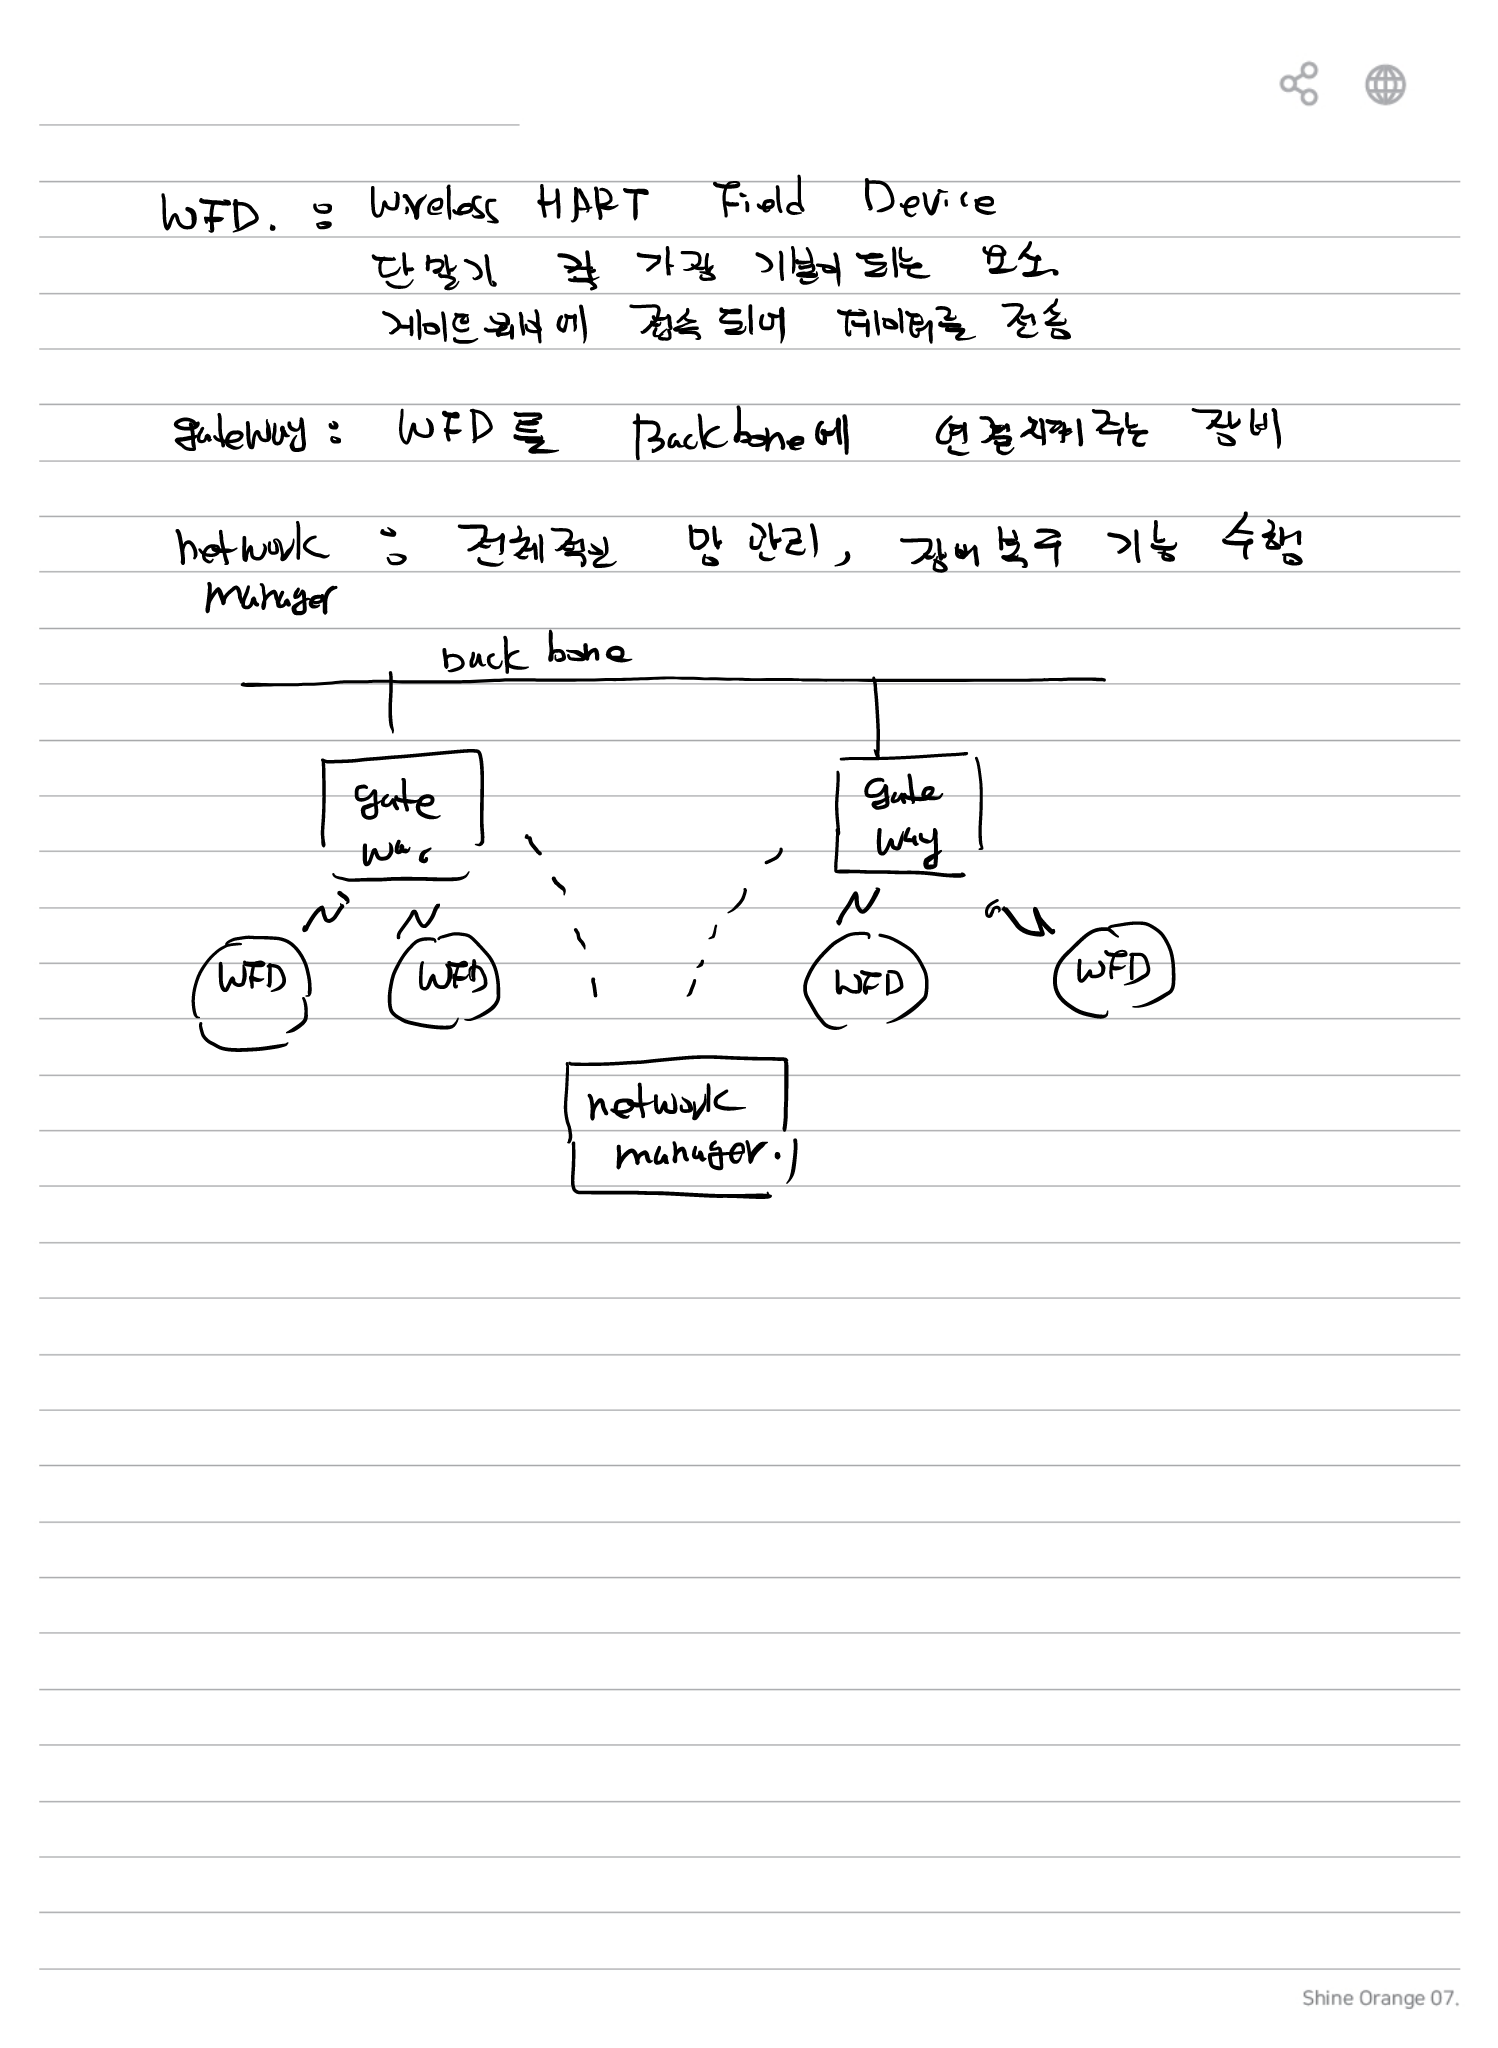 WFD. : Wireless HART Field Device
단말기 즉 가장 기본이 되는 요소.
게이트웨이에 접속되어 데이터를 전송
gateway : WFD를 Backbone에 연결시켜주는 장비
network : 전체적인 망 관리, 장비 기능 수행
manager
back bone
gate
gate
way
way
WFD
WFD
WFD
WFD
network
manager.
Shine Orange 07.